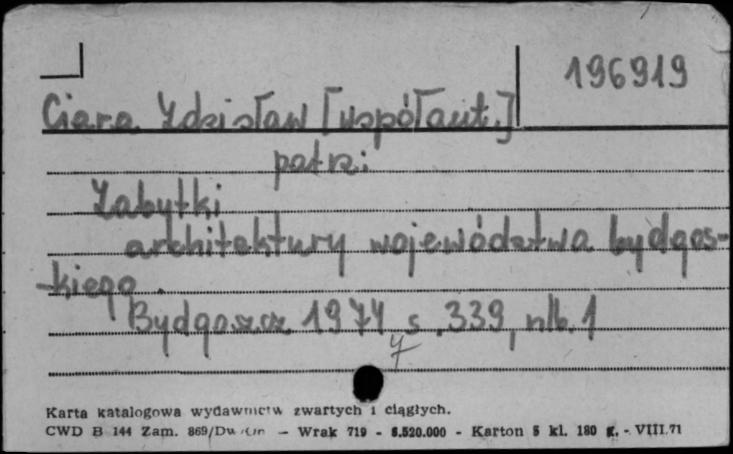 196919
Ciara Zdzisław [współaut.]
patrz:
Zabytki
architektury województwa bydgos-
-kiego.
Bydgoszcz 1974, s. 339, nlb. 1
4
Karta katalogowa wydawnictw zwartych i ciągłych.
CWD B 144 Zam. 869/ — Wrak 719 - 8.520.000 - Karton 5 kl. 180 g. - VIII.71